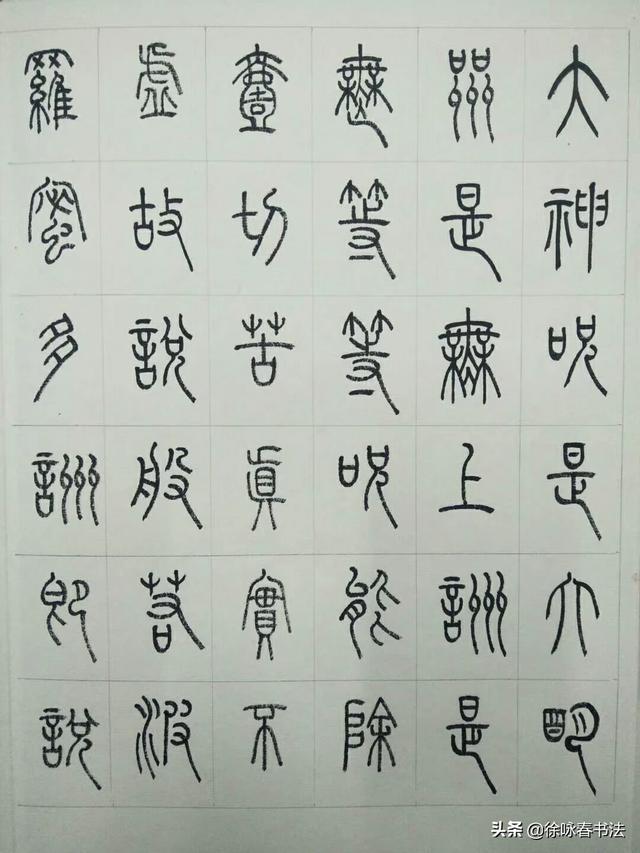 大神呪是大明
喌是無上詶是
無等等呪能除
壹切苦眞實不
虛故說般若波
羅蜜多詶即說
头条 @徐咏春书法